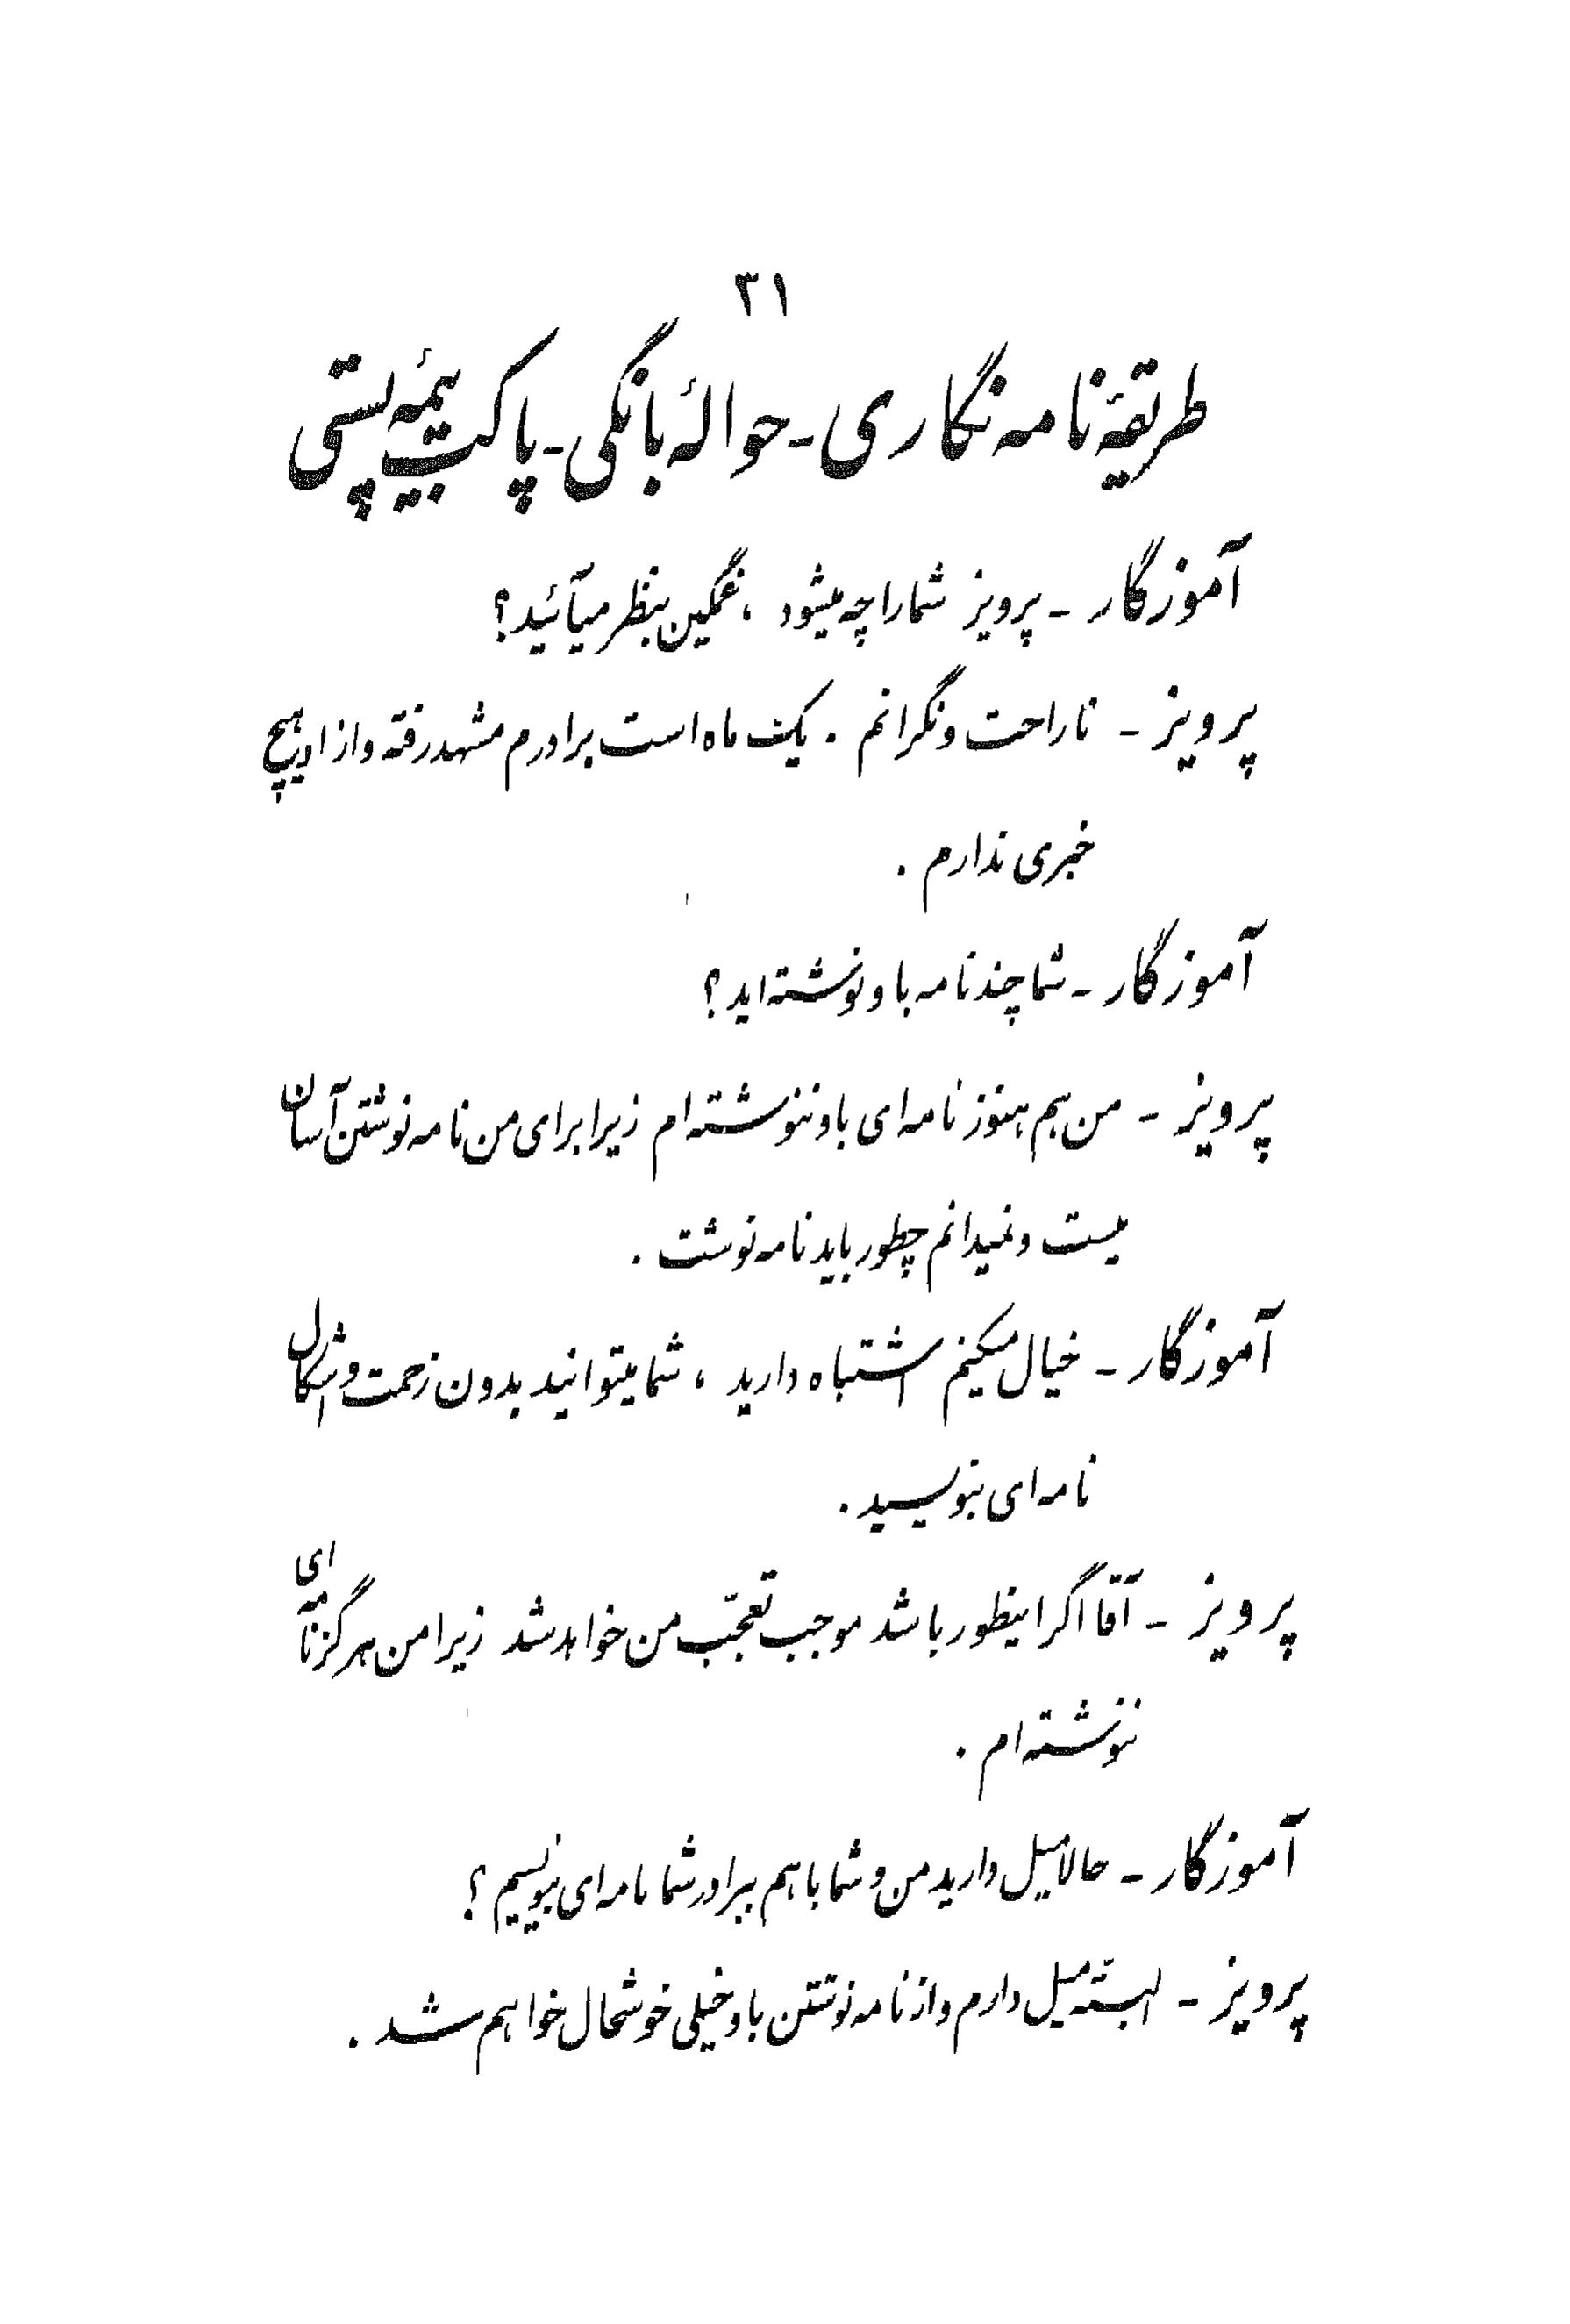 ۳۱
طریقهٔ نامه نگاری - حوالهٔ بانکی - پاکت بیمهٔ پستی
آموزگار - پرویز شما را چه میشود ، غمگین بنظر میآئید ؟
پرویز - ناراحت و نگرانم . یک ماه است برادرم مشهد رفته و از او هیچ
خبری ندارم .
آموزگار - شما چند نامه باو نوشته‌اید ؟
پرویز - من هم هنوز نامه‌ای باو ننوشته‌ام زیرا برای من نامه نوشتن آسان
نیست و نمیدانم چطور باید نامه نوشت .
آموزگار - خیال میکنم اشتباه دارید ، شما میتوانید بدون زحمت و اشکال
نامه‌ای بنویسید .
پرویز - آقا اگر اینطور باشد موجب تعجّب من خواهد شد زیرا من هرگز نامه‌ای
ننوشته‌ام .
آموزگار - حالا میل دارید من و شما با هم ببرادر شما نامه‌ای بنویسیم ؟
پرویز - البتّه میل دارم و از نامه نوشتن باو خیلی خوشحال خواهم شد .